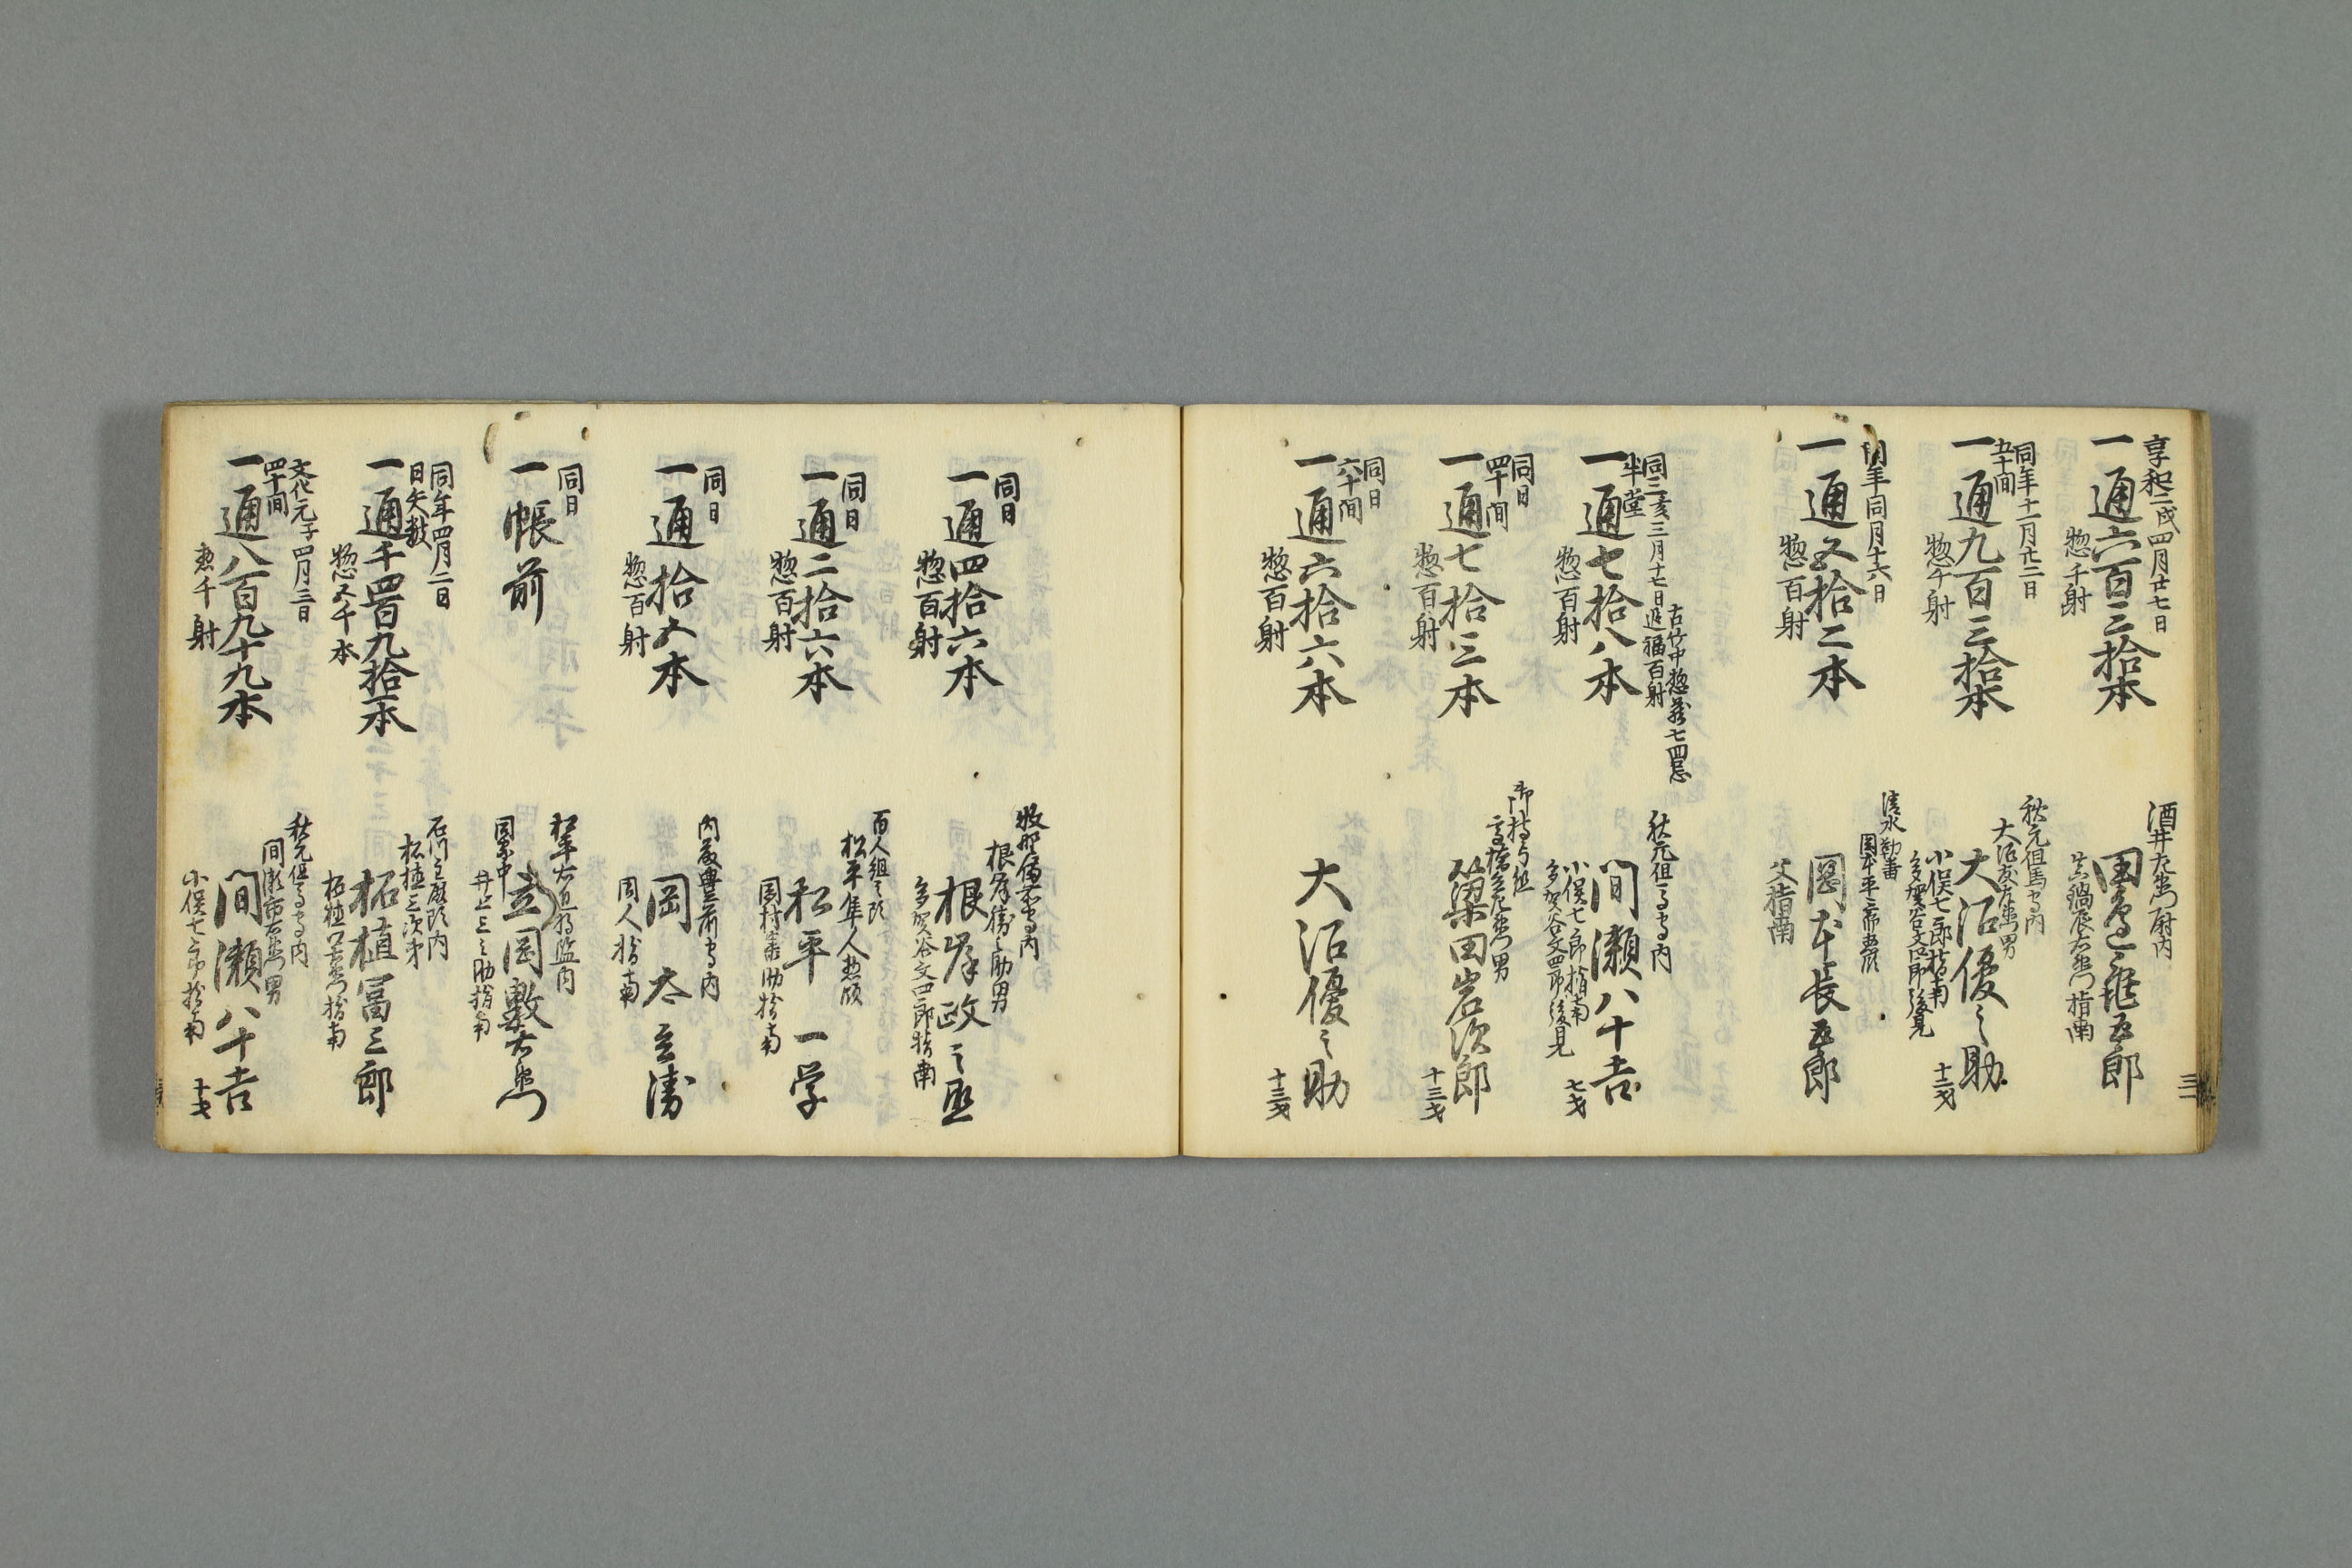 享和二戌四月廿七日
一通六百三拾本
惣千射
酒井左衛門尉内
指南
同年十一月廿二日
五十間
一通九百三拾本
惣千射
秋元但馬守内
大沼友左衛門男
大沼優之助
十二才
小俣七郎指南
多賀谷文四郎後見
同年同月十六日
一通五拾二本
惣百射
清水勤番
岡本長五郎
父指南
同三亥三月十七日
半堂
一通七拾八本
惣百射
秋元但馬守内
間瀬八十吉
七才
小俣七郎指南
多賀谷文四郎後見
同日
四十間
一通七拾三本
惣百射
御持弓組
簗田岩次郎
十三才
同日
六十間
一通六拾六本
惣百射
大沼優之助
十三才
三
同日
一通四拾六本
惣百射
牧野備前守内
根岸政之丞
多賀谷文四郎指南
同日
一通二拾六本
惣百射
百人組之頭
松平隼人惣領
松平一学
同日
一通拾五本
惣百射
内藤豊前守内
岡太玄清
同人指南
同日
一帳前
松平右近将監内
同年四月二日
日矢数
一通千四百九拾本
惣五千本
石川主殿頭内
柘植三次弟
柘植冨三郎
文化元子四月三日
四十間
一通八百九十九本
惣千射
秋元但馬守内
間瀬八十吉
小俣七郎指南